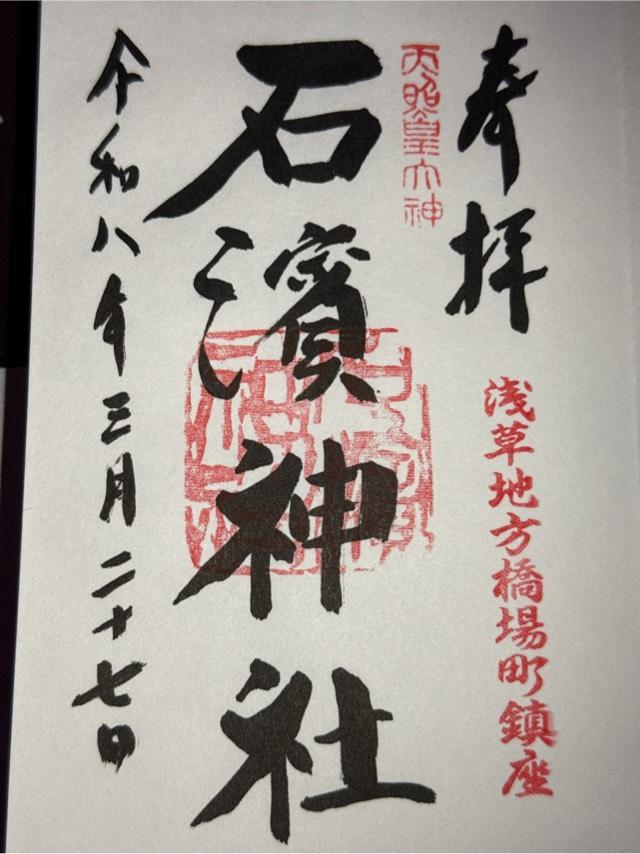 奉拝
浅草地方橋場町鎮座
天照皇大神
石濱神社
令和八年三月二十七日